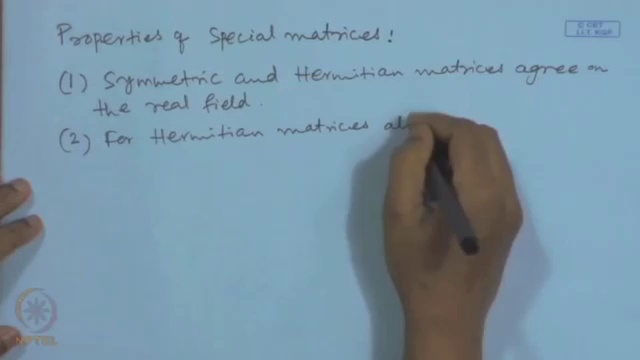 Properties of Special matrices:
© CET
I.I.T. KGP
(1) Symmetric and Hermitian matrices agree on
the real field.
(2) For Hermitian matrices al
NPTEL